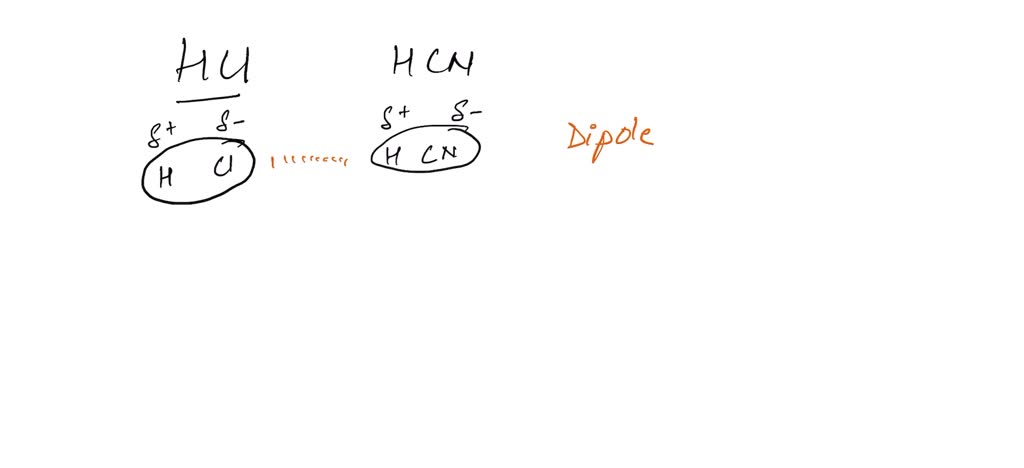 HCl HCN
δ+ δ- δ+ δ-
H Cl H CN Dipole